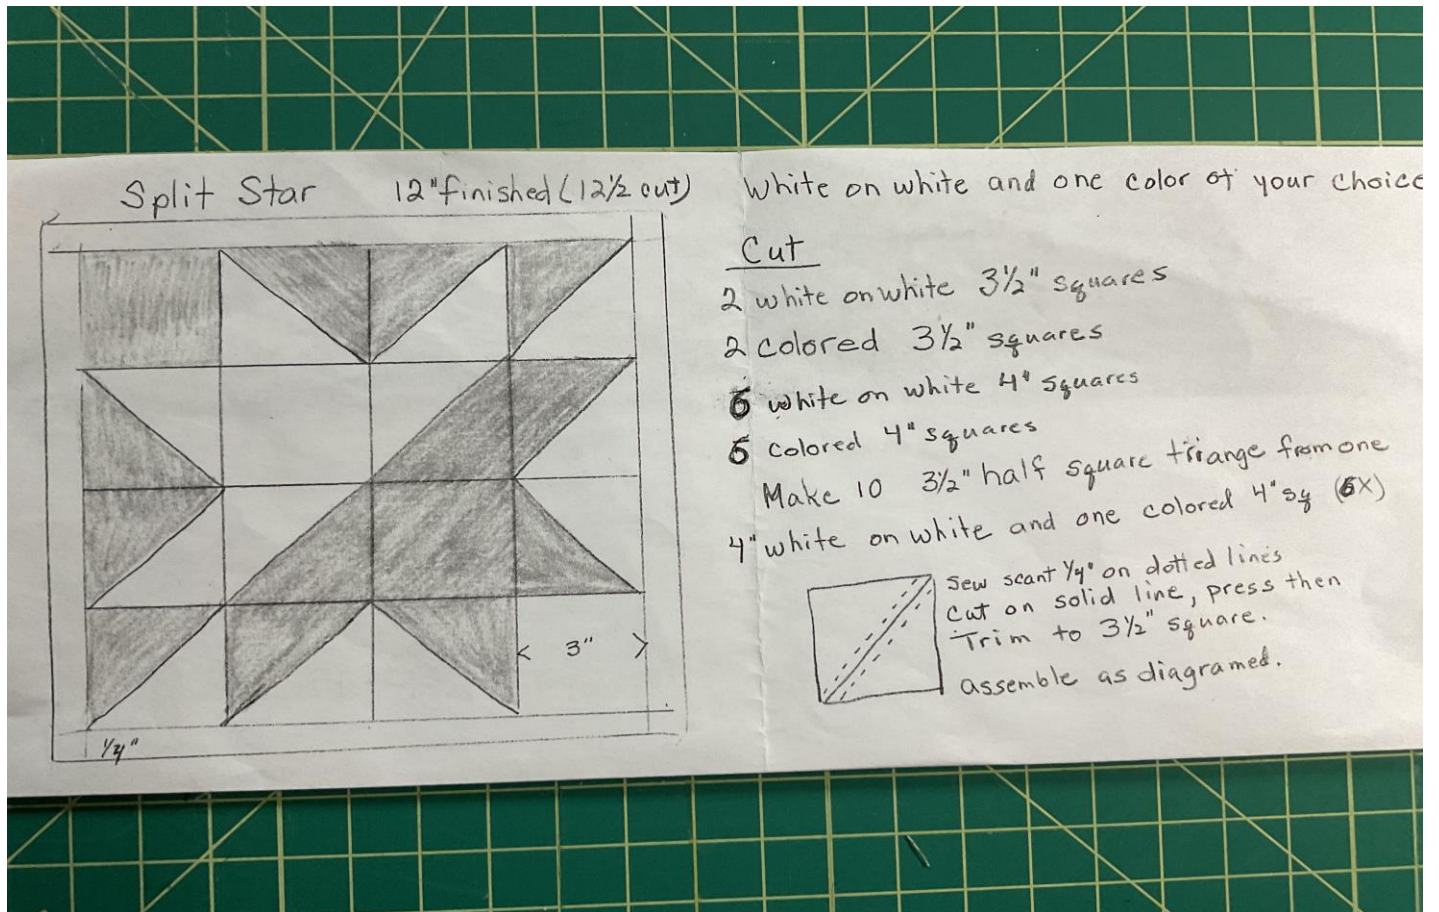 Split Star 12" finished (12 1/2 cut)
White on white and one color of your choice
Cut
2 white on white 3 1/2" squares
2 colored 3 1/2" squares
6 white on white 4" squares
6 colored 4" squares
Make 10 3 1/2" half square triange from one
4" white on white and one colored 4" sq (6x)
Sew scant 1/4" on dotted lines
Cut on solid line, press then
Trim to 3 1/2" square.
assemble as diagramed.
3"
1/4"